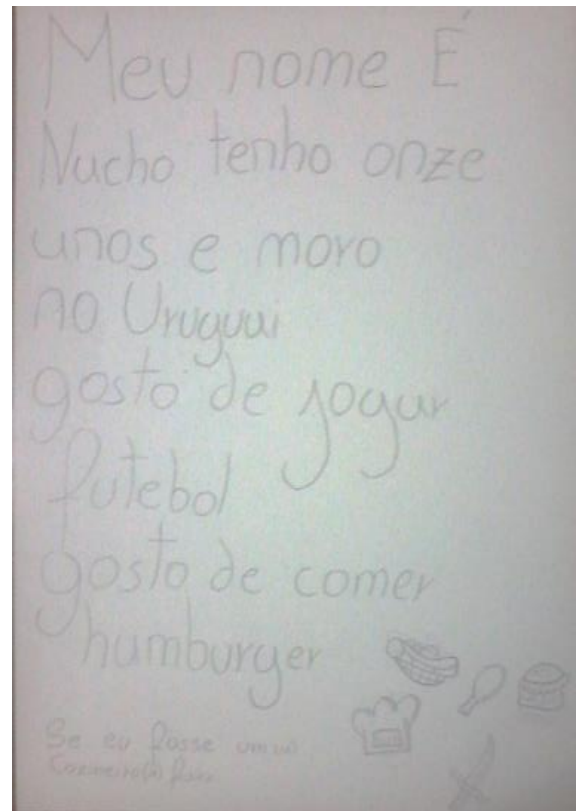 Meu nome É
Nacho tenho onze
anos e moro
no Uruguai
gosto de jogar
futebol
gosto de comer
hamburger
Se eu fosse um
Cozinheiro(a)